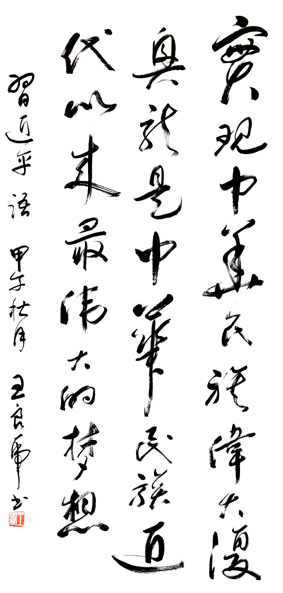 實现中華民族偉大復
興就是中華民族近
代以来最伟大的梦想
習近平語 甲午秋月 王良虎书